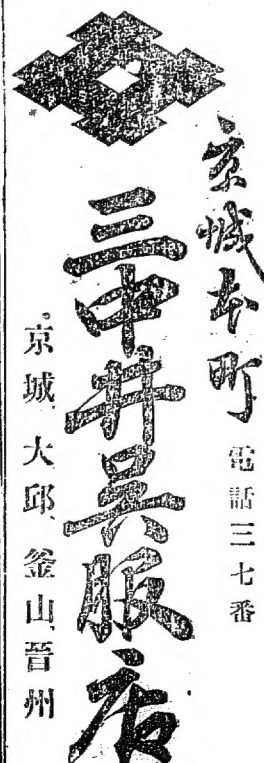 京城本町
電話三七番
三中井呉服店
京城、大邱、釜山、晋州